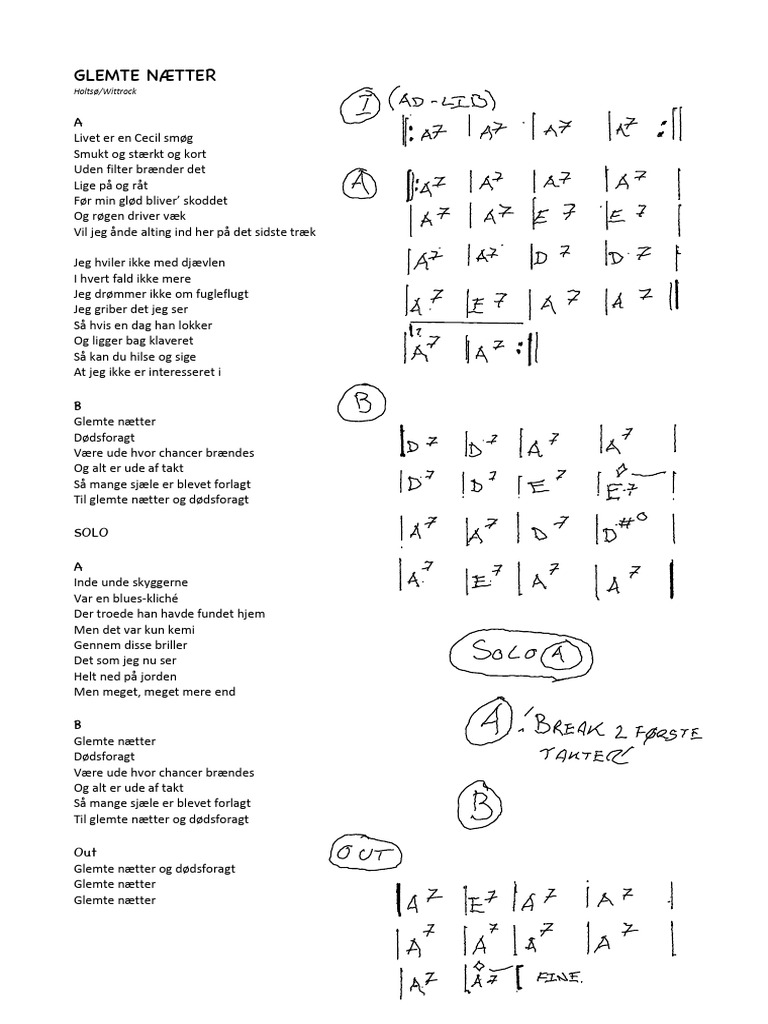 GLEMTE NÆTTER
Holtsø/Wittrock
A
Livet er en Cecil smøg
Smukt og stærkt og kort
Uden filter brænder det
Lige på og råt
Før min glød bliver' skoddet
Og røgen driver væk
Vil jeg ånde alting ind her på det sidste træk
Jeg hviler ikke med djævlen
I hvert fald ikke mere
Jeg drømmer ikke om fugleflugt
Jeg griber det jeg ser
Så hvis en dag han lokker
Og ligger bag klaveret
Så kan du hilse og sige
At jeg ikke er interesseret i
B
Glemte nætter
Dødsforagt
Være ude hvor chancer brændes
Og alt er ude af takt
Så mange sjæle er blevet forlagt
Til glemte nætter og dødsforagt
SOLO
A
Inde unde skyggerne
Var en blues-kliché
Der troede han havde fundet hjem
Men det var kun kemi
Gennem disse briller
Det som jeg nu ser
Helt ned på jorden
Men meget, meget mere end
B
Glemte nætter
Dødsforagt
Være ude hvor chancer brændes
Og alt er ude af takt
Så mange sjæle er blevet forlagt
Til glemte nætter og dødsforagt
Out
Glemte nætter og dødsforagt
Glemte nætter
Glemte nætter
I (AD-LIB)
|: A7 | A7 | A7 | A7 :||
A
|: A7 | A7 | A7 | A7 |
| A7 | A7 | E7 | E7 |
| A7 | A7 | D7 | D7 |
| A7 | E7 | A7 | A7 ||
| A7 | A7 :||
B
| D7 | D7 | A7 | A7 |
| D7 | D7 | E7 | E7 |
| A7 | A7 | D7 | D#o |
| A7 | E7 | A7 | A7 |
SOLO A
A : 'BREAK 2 FØRSTE
TAKTER'
B
OUT
| A7 | E7 | A7 | A7 |
| A7 | A7 | A7 | A7 |
| A7 | A7 [ FINE.